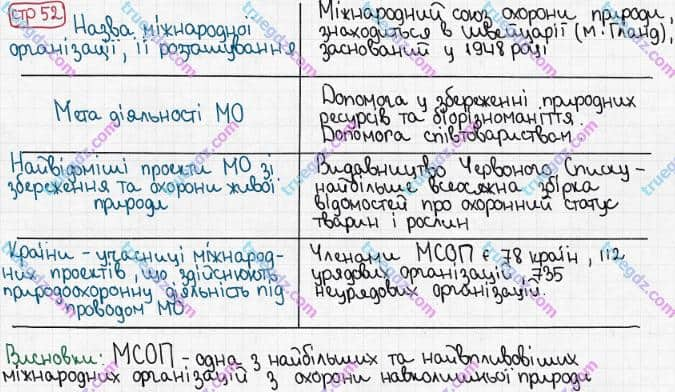 стр 52
Назва міжнародної
організації, її розташування
Міжнародний союз охорони природи,
знаходиться в Швейцарії (м. Гланд),
заснований у 1948 році
Мета діяльності МО
Допомога у збереженні природних
ресурсів та біорізноманіття
Допомога співтовариствам.
Найвідоміші проекти МО зі
збереження та охорони живої
природи
Видавництво Червоного Списку -
найбільше всеосяжна збірка
відомостей про охоронний статус
тварин і рослин
Країни - учасниці міжнарод-
них проектів, що здійснюють
природоохоронну діяльність під
проводом МО
Членами МСОП є 78 країн, 112
урядових організацій, 735
неурядових організацій.
Висновки: МСОП - одна з найбільших та найвпливовіших
міжнародних організацій з охорони навколишньої природи
truegdz.com